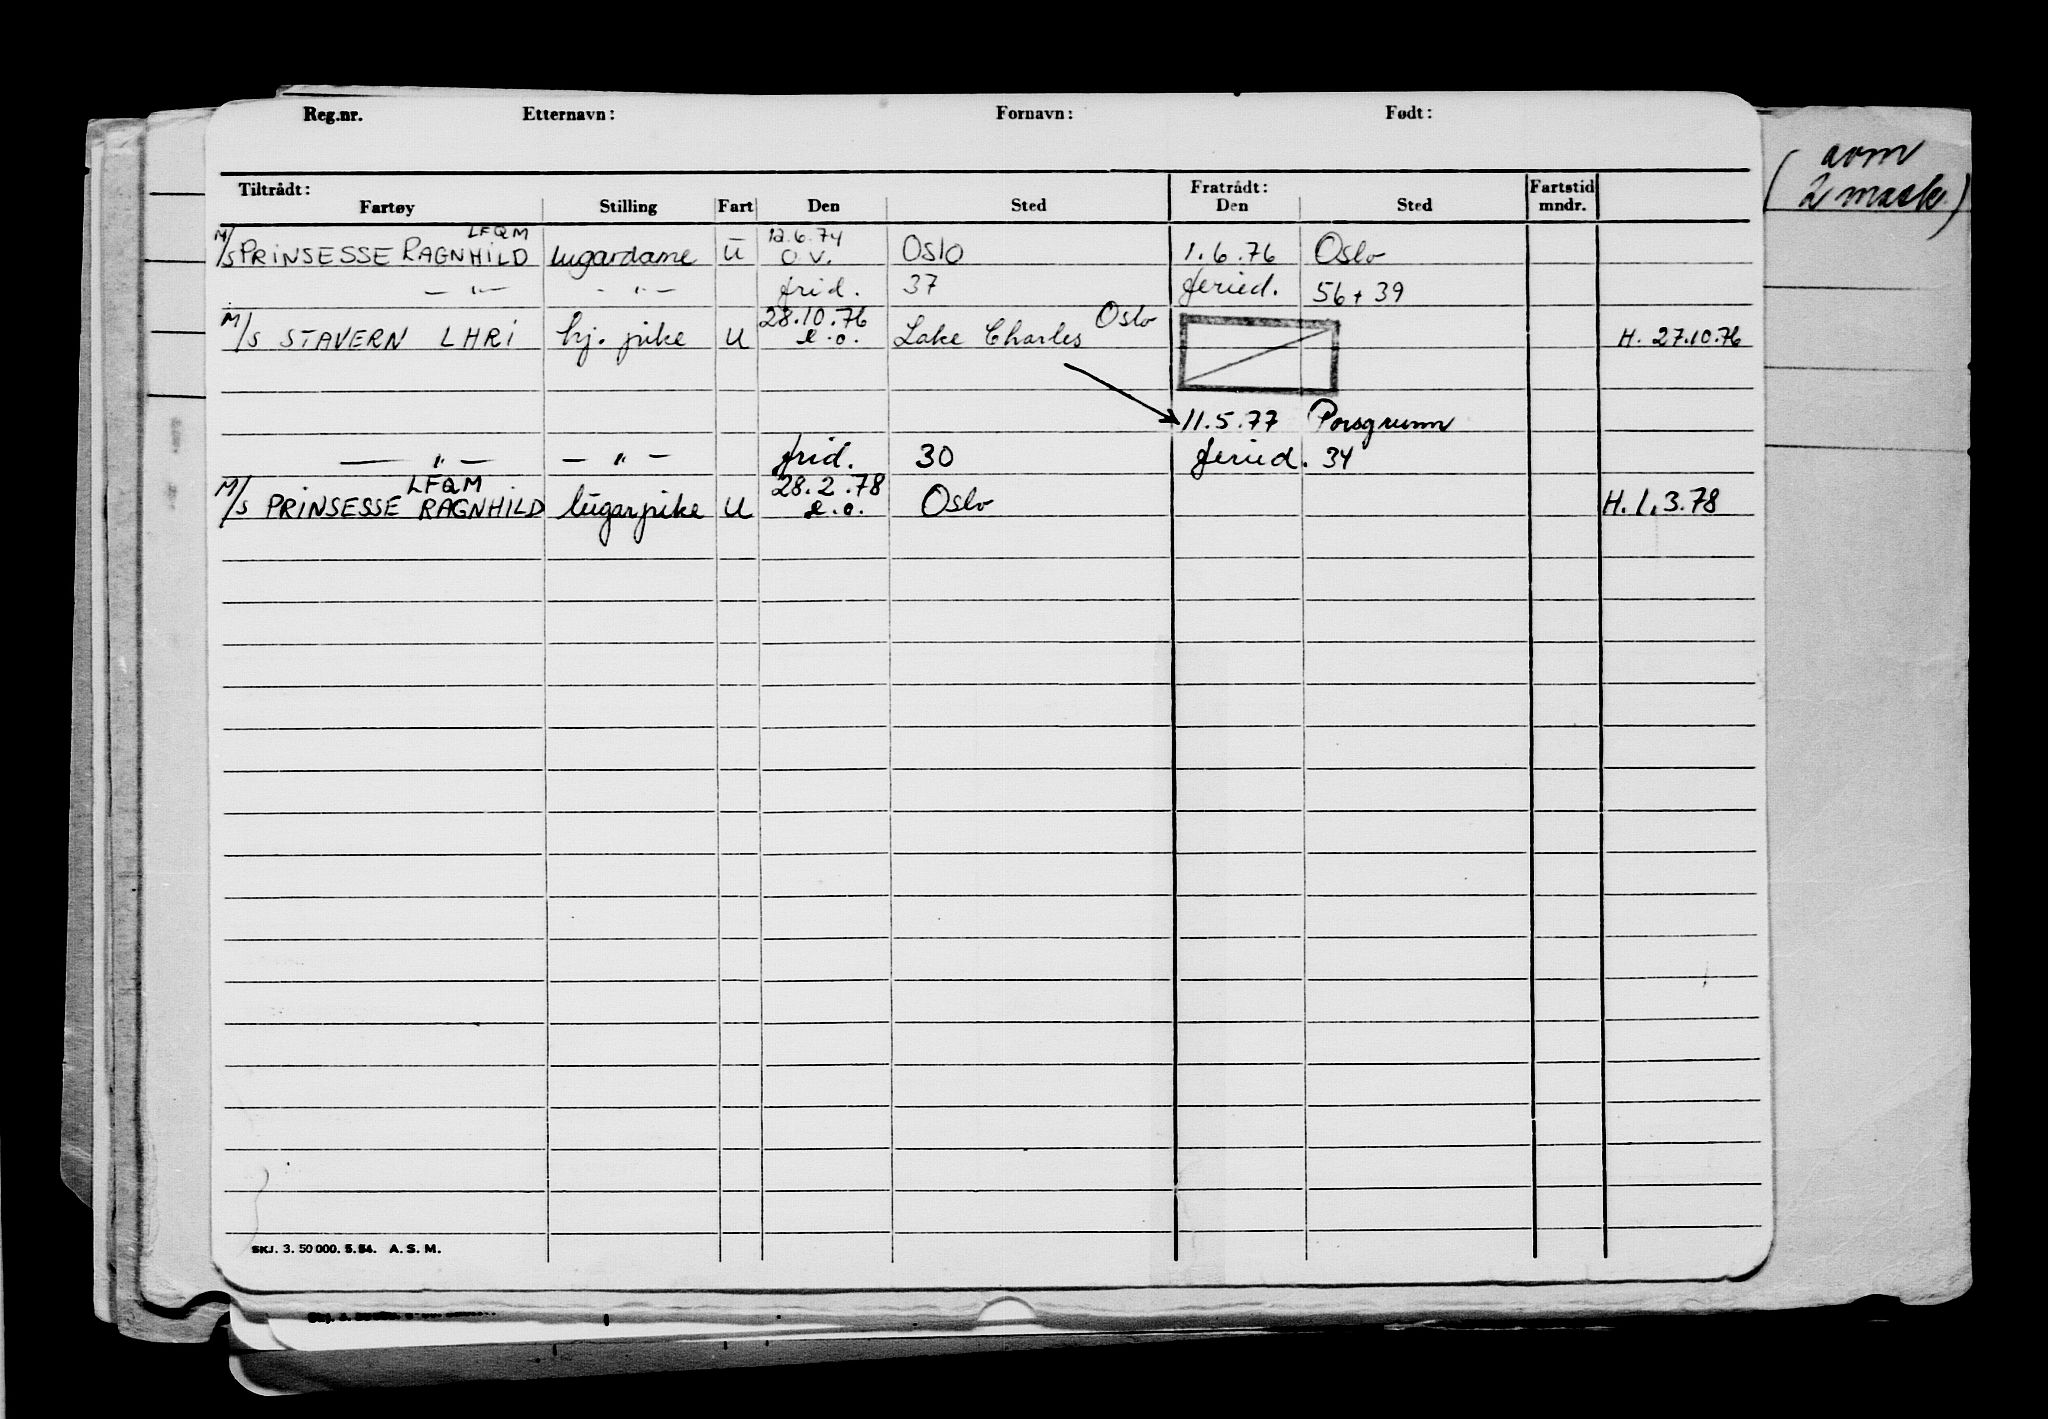 Reg.nr. Etternavn: Fornavn: Født:
Tiltrådt: Fratrådt: Fartstid
Fartøy Stilling Fart Den Sted Den Sted mndr.
(avm
2 mask.)
LFQM 12.6.74
M/S PRINSESSE RAGNHILD lugardame U O.V. Oslo 1.6.76 Oslo
— " — - " — frid. 37 feried. 56 + 39
28.10.76 Oslo
M/S STAVERN LHRI hj. pike U e.o. Lake Charles H. 27.10.76
11.5.77 Porsgrunn
— " — — " — frid. 30 feried. 34
LFQM 28.2.78
M/S PRINSESSE RAGNHILD lugarpike U e.o. Oslo H. 1.3.78
SKJ. 3. 50 000. 5.54. A. S. M.